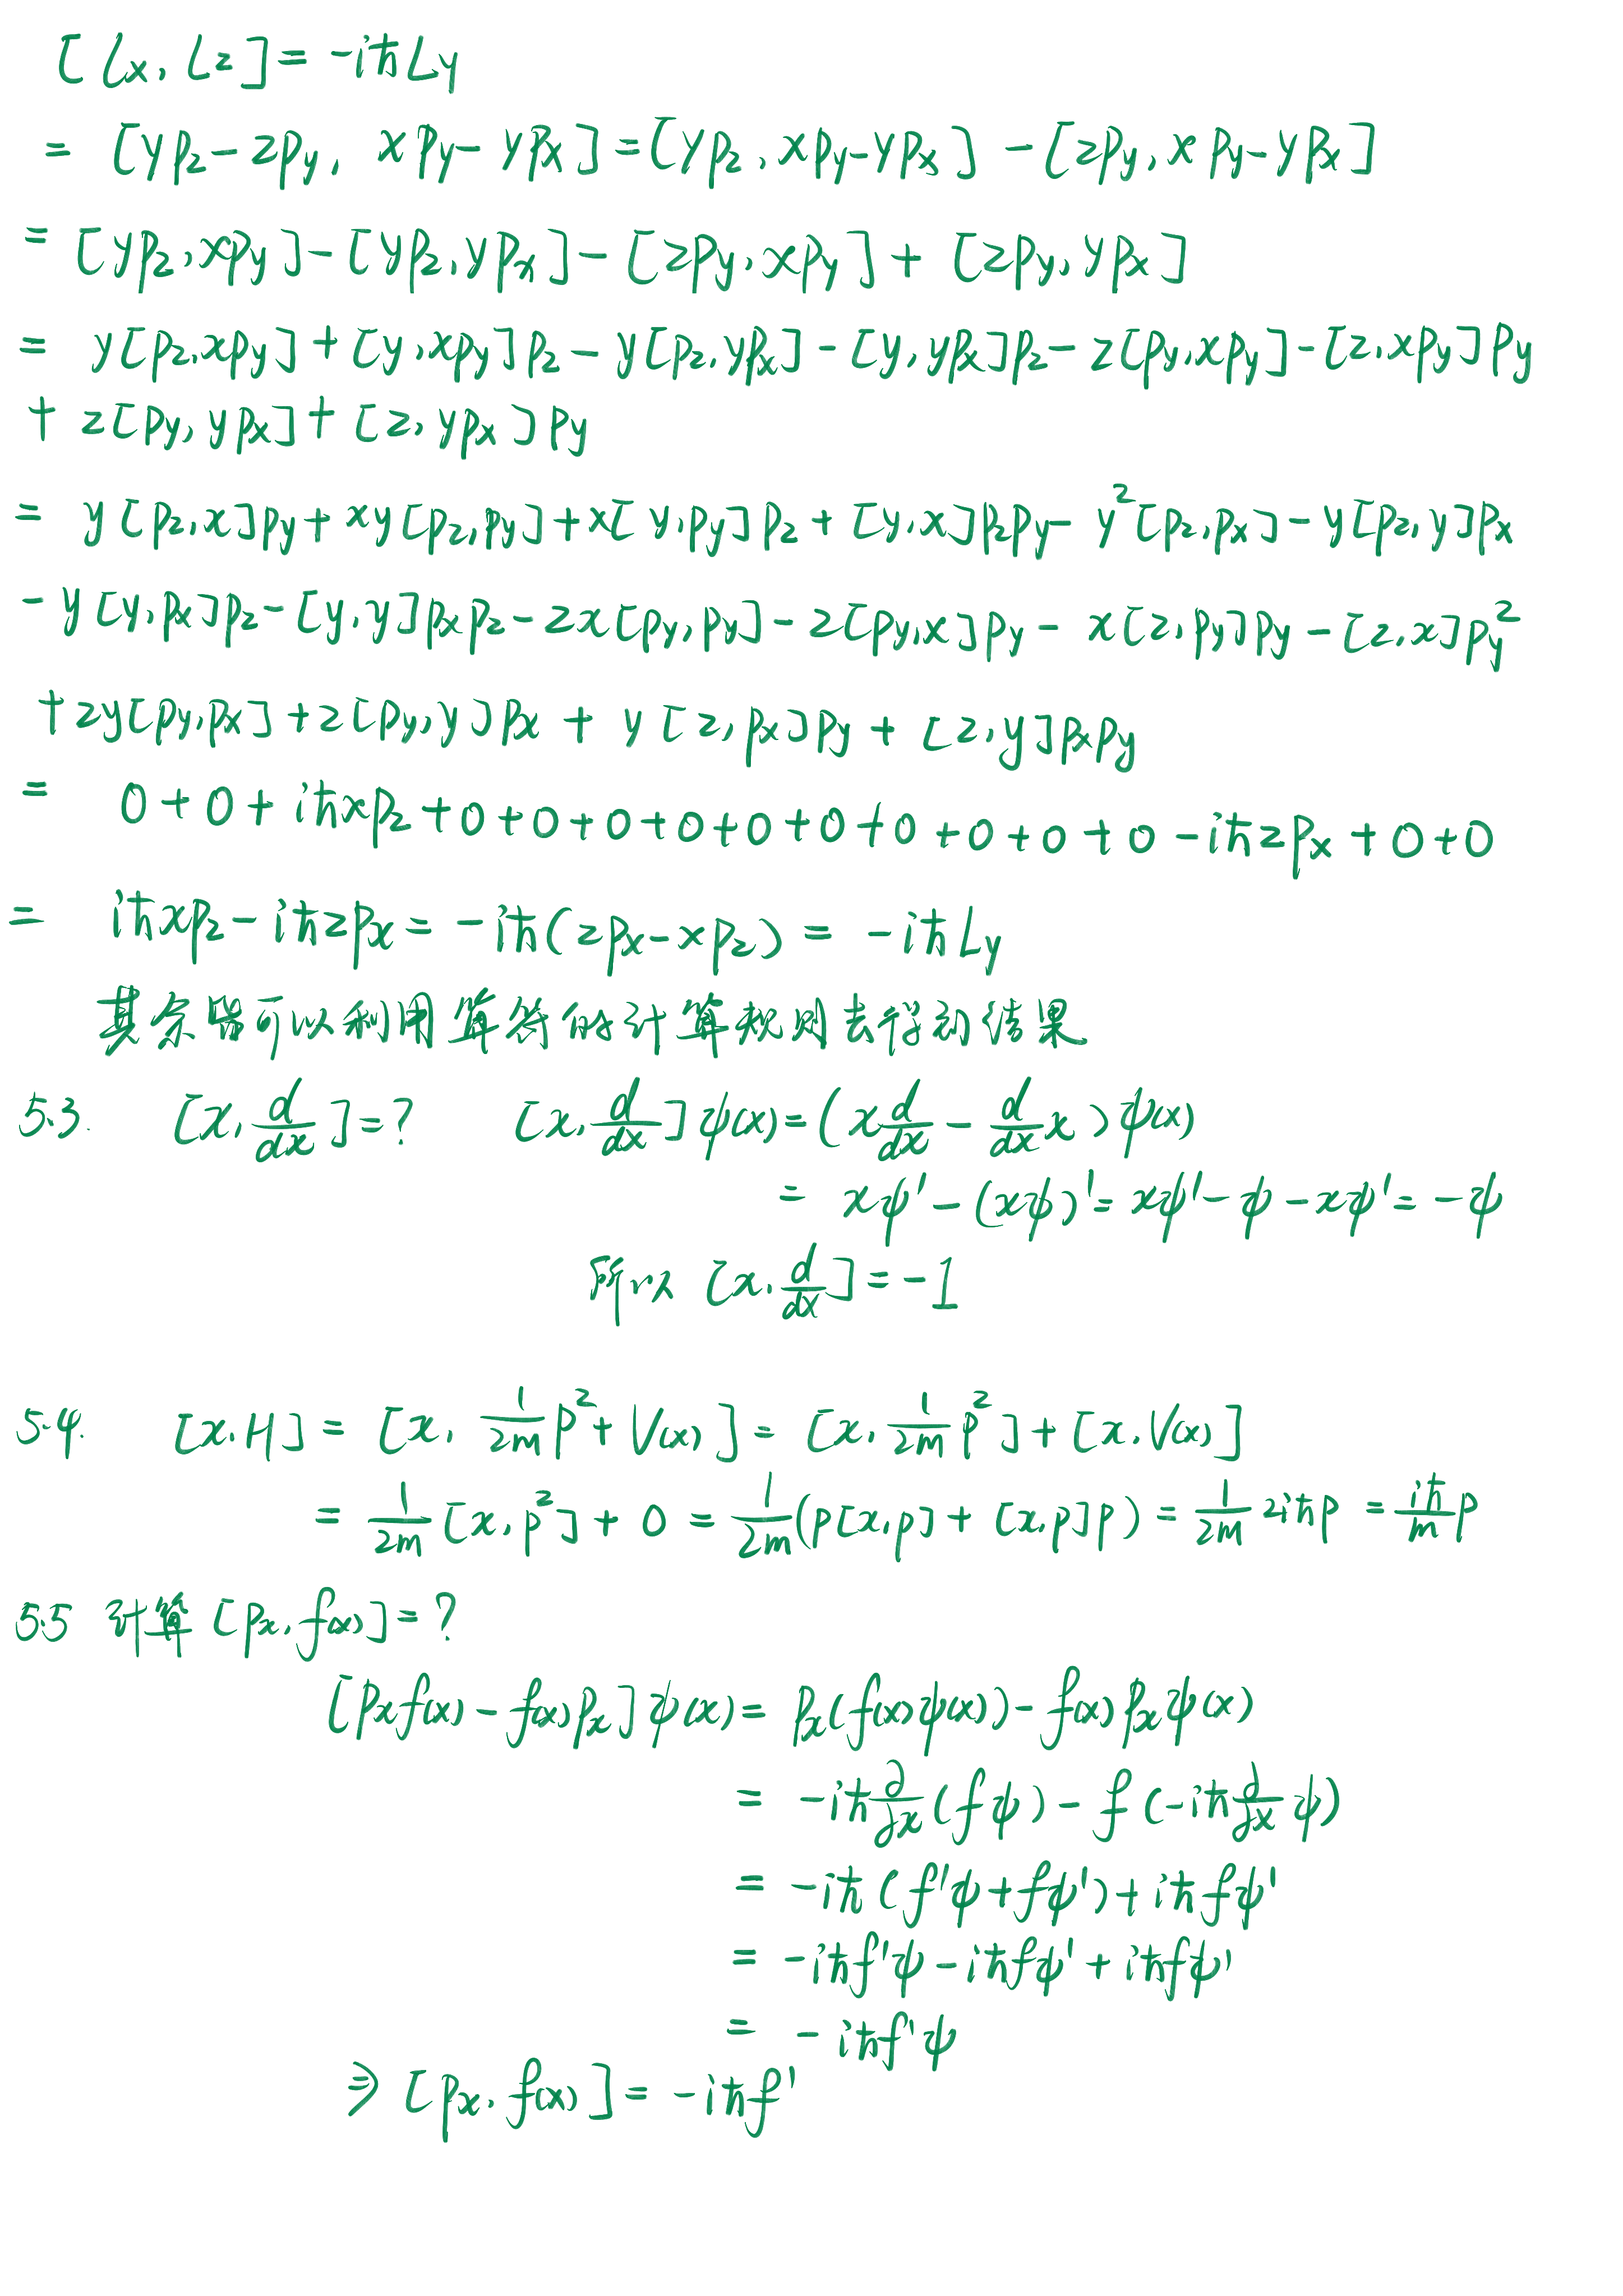 [Lx, Lz] = -iħLy
= [ypz - zpy, xpy - ypx] = [ypz, xpy - ypx] - [zpy, xpy - ypx]
= [ypz, xpy] - [ypz, ypx] - [zpy, xpy] + [zpy, ypx]
= y[pz, xpy] + [y, xpy]pz - y[pz, ypx] - [y, ypx]pz - z[py, xpy] - [z, xpy]py
+ z[py, ypx] + [z, ypx]py
= y[pz, x]py + xy[pz, py] + x[y, py]pz + [y, x]pzpy - y²[pz, px] - y[pz, y]px
- y[y, px]pz - [y, y]pxpz - zx[py, py] - z[py, x]py - x[z, py]py - [z, x]py²
+ zy[py, px] + z[py, y]px + y[z, px]py + [z, y]pxpy
= 0 + 0 + iħxpz + 0 + 0 + 0 + 0 + 0 + 0 + 0 + 0 + 0 + 0 - iħzpx + 0 + 0
= iħxpz - iħzpx = -iħ(zpx - xpz) = -iħLy
其余皆可以利用算符的计算规则去得到结果.
5.3. [x, d/dx] = ? [x, d/dx]ψ(x) = (x d/dx - d/dx x)ψ(x)
= xψ' - (xψ)' = xψ' - ψ - xψ' = -ψ
所以 [x, d/dx] = -1
5.4. [x, H] = [x, 1/2m p² + V(x)] = [x, 1/2m p²] + [x, V(x)]
= 1/2m [x, p²] + 0 = 1/2m (p[x, p] + [x, p]p) = 1/2m 2iħp = iħ/m p
5.5 计算 [px, f(x)] = ?
[pxf(x) - f(x)px]ψ(x) = px(f(x)ψ(x)) - f(x)pxψ(x)
= -iħ ∂/∂x (fψ) - f(-iħ ∂/∂x ψ)
= -iħ(f'ψ + fψ') + iħfψ'
= -iħf'ψ - iħfψ' + iħfψ'
= -iħf'ψ
⇒ [px, f(x)] = -iħf'